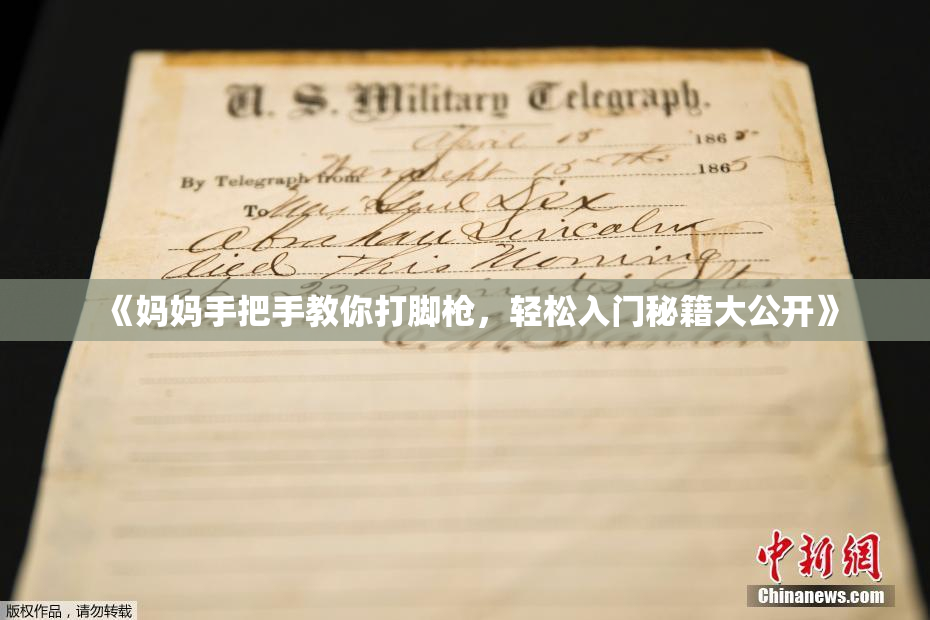 U. S. Military Telegraph.
April 15 1865
By Telegraph from War Dept 15th 1865
To Maj Genl Dix
Abraham Lincoln
died This Morning
at 22 minutes after
《妈妈手把手教你打脚枪，轻松入门秘籍大公开》
E. M. Stanton
中新網
Chinanews.com
版权作品，请勿转载